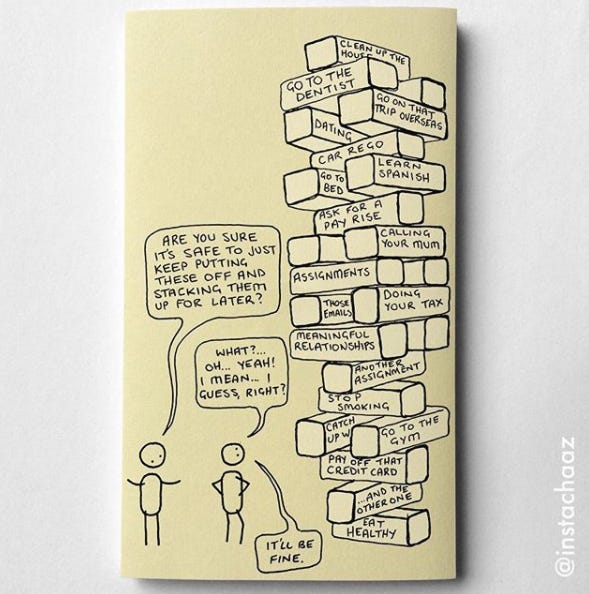 CLEAN UP THE
HOUSE
GO TO THE
DENTIST
GO ON THAT
TRIP OVERSEAS
DATING
CAR REGO
LEARN
SPANISH
GO TO
BED
ASK FOR A
PAY RISE
CALLING
YOUR MUM
ARE YOU SURE
IT'S SAFE TO JUST
KEEP PUTTING
THESE OFF AND
STACKING THEM
UP FOR LATER?
ASSIGNMENTS
THOSE
EMAILS
DOING
YOUR TAX
MEANINGFUL
RELATIONSHIPS
WHAT?...
OH... YEAH!
I MEAN... I
GUESS, RIGHT?
ANOTHER
ASSIGNMENT
STOP
SMOKING
CATCH
UP W
GO TO THE
GYM
PAY OFF THAT
CREDIT CARD
...AND THE
OTHER ONE
EAT
HEALTHY
IT'LL BE
FINE.
@instachaaz